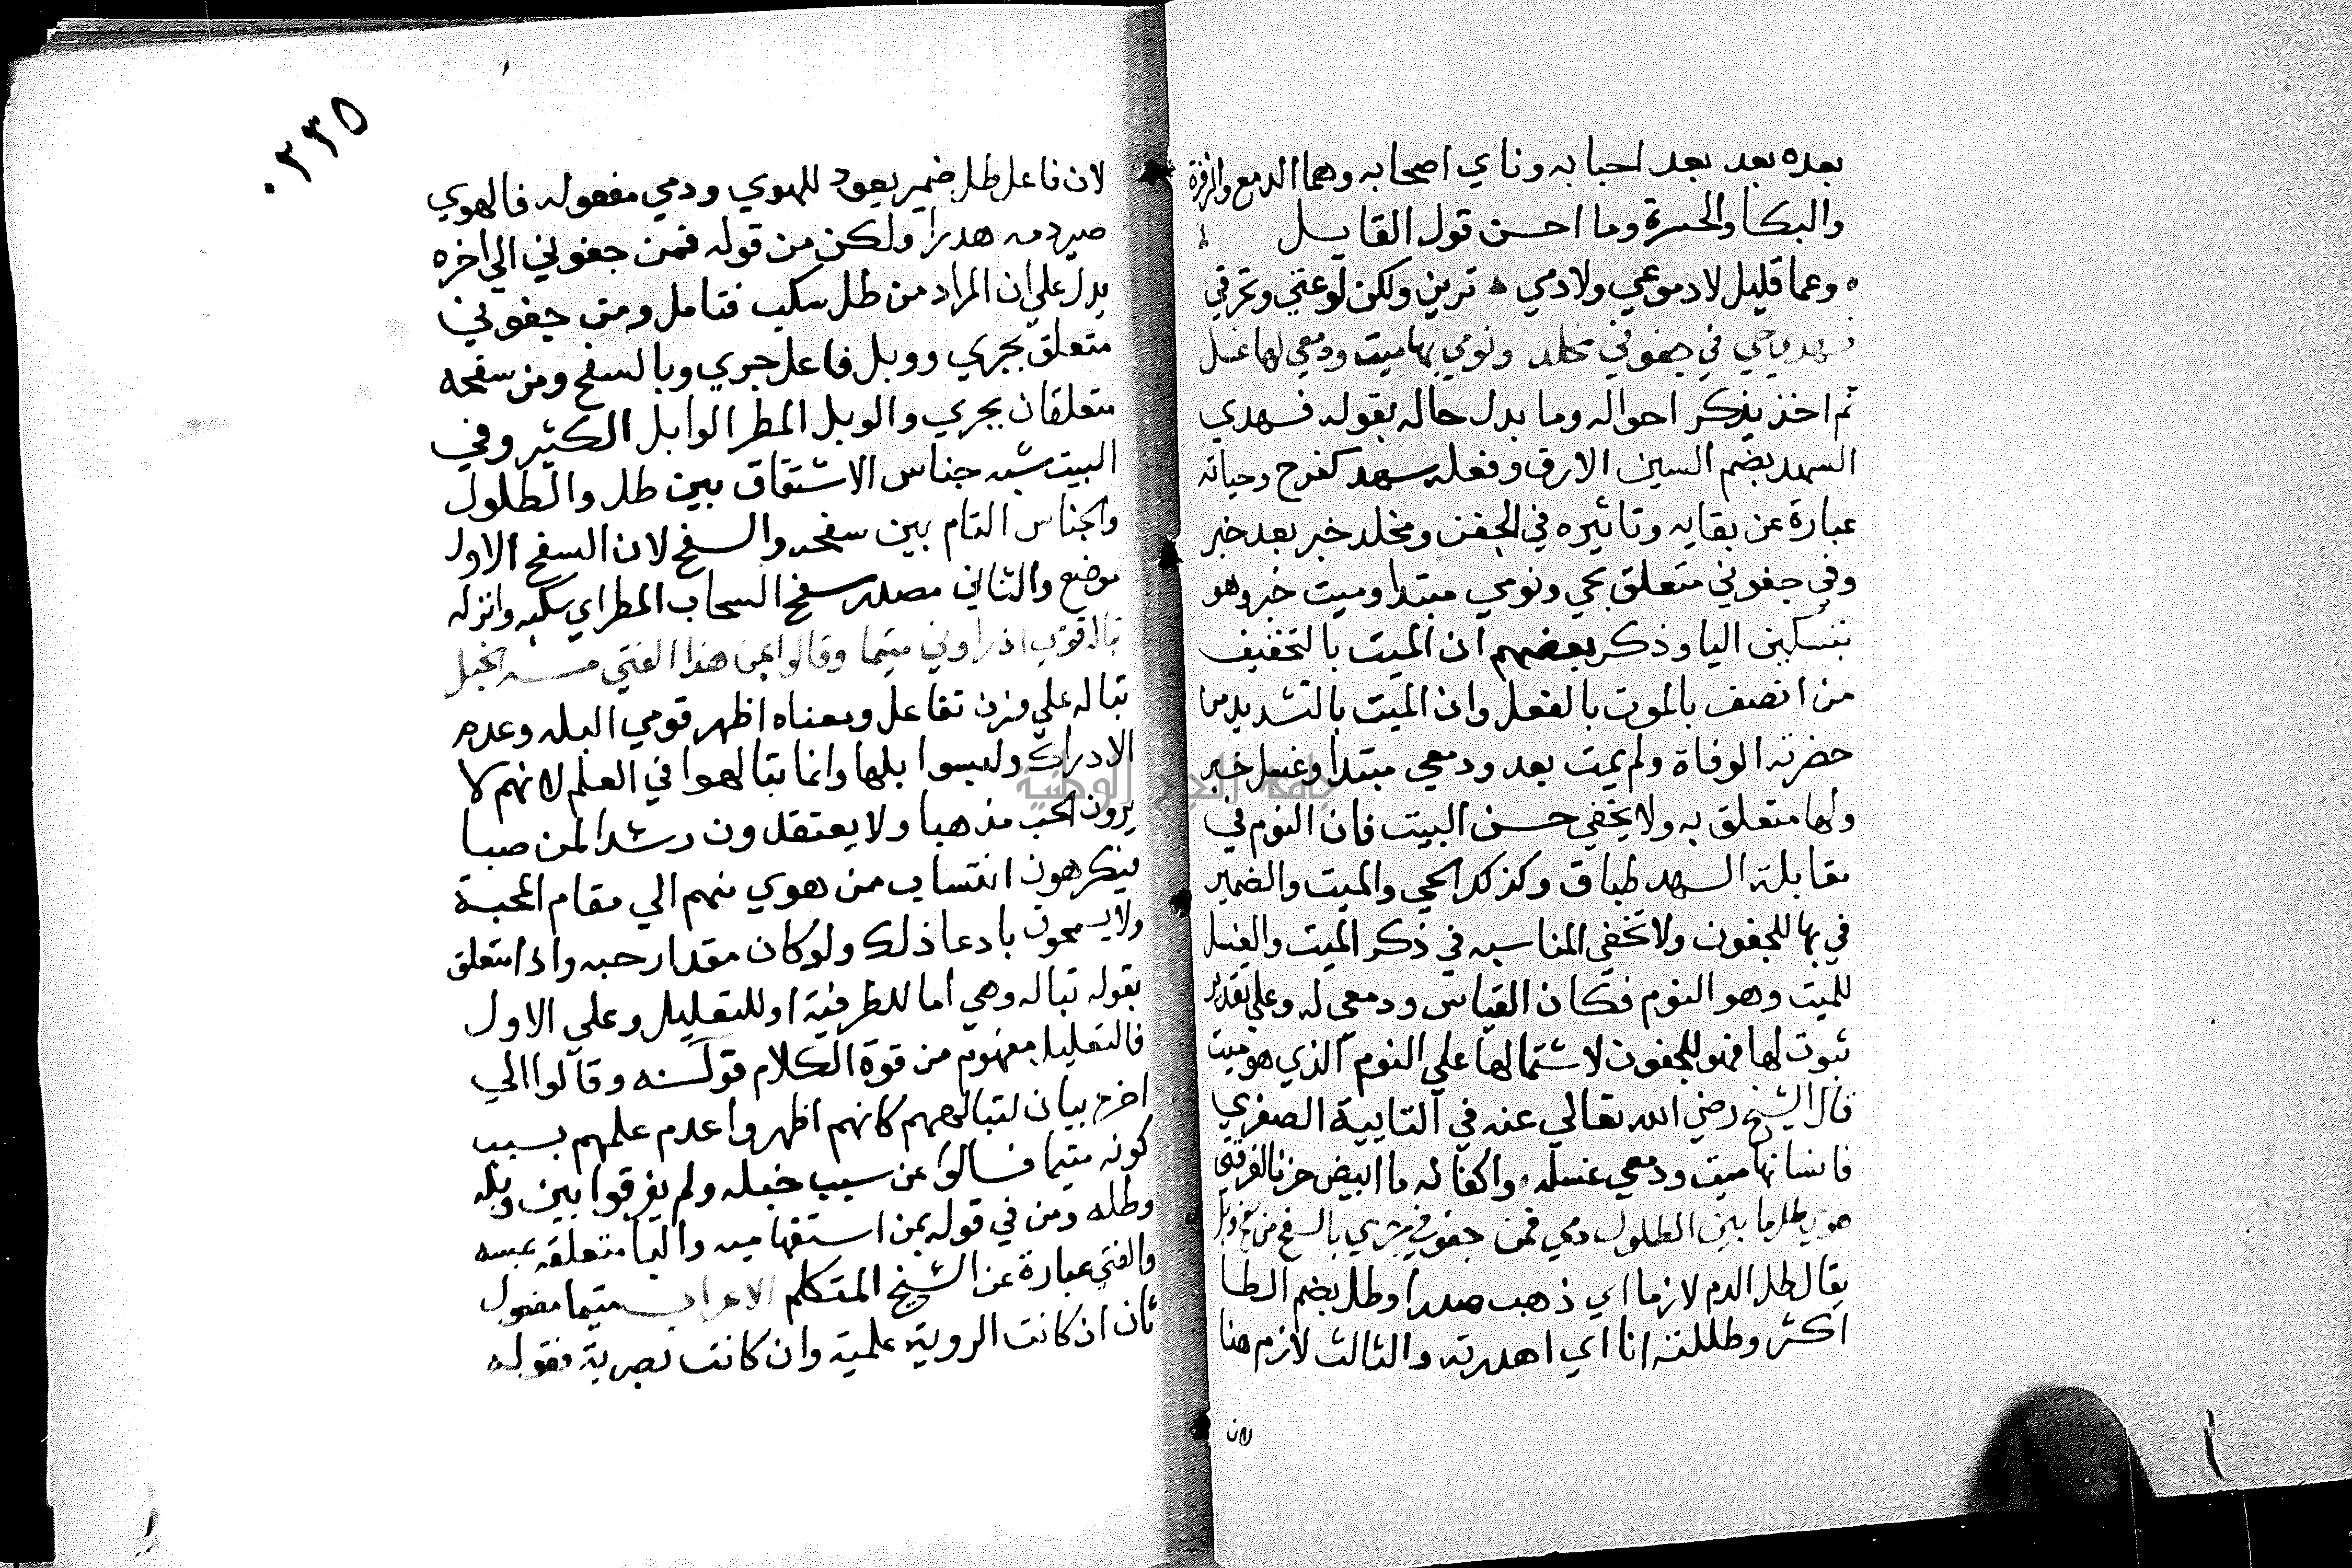 بعده بعد بعد احبابه وناي اصحابه وهما الدمع والزفرة
والبكا والحسرة وما احسن قول القايل
وعما قليل لا دموعي ولا دمي ترين ولكن لوعتي وتحرقي
فسهدي حي في جفوني مخلد ونومي بها ميت ودمعي لها غسل
ثم اخذ يذكر احواله وما بدل حاله بقوله فسهدي
السهد بضم السين الارق وفعله سهد كفرح وحياته
عبارة عن بقايه وتاثيره في الجفن ومخلد خبر بعد خبر
وفي جفوني متعلق بحي ونومي مبتدا وميت خبر وهو
بتسكين اليا وذكر بعضهم ان الميت بالتخفيف
من اتصف بالموت بالفعل وان الميت بالتشديد من
حضرته الوفاة ولم يمت بعد ودمعي مبتدا وغسل خبر
ولها متعلق به ولا يخفي حسن البيت فان النوم في
مقابلة السهد طباق وكذلك الحي والميت والضمير
في بها للجفون ولا تخفي المناسبه في ذكر الميت والغسل
للميت وهو النوم فكان القياس ودمعي له وعلي تقدير
ثبوت لها فهو للجفون لاشتمالها علي النوم الذي هو ميت
قال الشيخ رضي الله تعالي عنه في التايية الصغري
فانسانها ميت ودمعي غسله واكفانه ما ابيض حزنا لفرقتي
هوي طل ما بين الطلول دمي فمن جفوني جري بالسفح من سفحه وبل
يقال طل الدم لازما اي ذهب هدرا وطل بضم الطا
اكثر وطللته انا اي اهدرته والثالث لازم هنا
لان
٢٣٥
لان فاعل طل ضمير يعود للهوي ودمي مفعوله فالهوي
صير دمه هدرا ولكن من قوله فمن جفوني الي اخره
يدل علي ان المراد من طل سكب فتامل ومن جفوني
متعلق بجري ووبل فاعل جري وبالسفح ومن سفحه
متعلقان بجري والوبل المطر الوابل الكثير وفي
البيت شبه جناس الاشتقاق بين طل والطلول
والجناس التام بين سفحه والسفح لان السفح الاول
موضع والثاني مصدر سفح السحاب المطر اي سكبه وانزله
تباله قومي اذ راوني متيما وقالوا بمن هذا الفتي مسه الخبل
تباله علي وزن تفاعل ومعناه اظهر قومي البله وعدم
الادراك وليسوا بلها وانما تبالهوا في العلم لانهم لا
يرون الحب مذهبا ولا يعتقدون رشدا لمن صبا
فيكرهون انتساب من هوي منهم الي مقام المحبة
ولا يسمحون بادعا ذلك ولو كان مقدار حبه واذا متعلق
بقوله تباله وهي اما للظرفية او للتعليل وعلي الاول
فالتعليل مفهوم من قوة الكلام قولسنه وقالوا الي
اخره بيان لتبالههم كانهم اظهروا عدم علمهم بسبب
كونه متيما فسالوا عن سبب خبله ولم يفرقوا بين وبله
وطله ومن في قوله بمن استفهاميه والبا متعلقه بمسه
والفتي عبارة عن الشيخ المتكلم الاعراب متيما مفعول
ثان ان كانت الروية علمية وان كانت بصرية فقوله